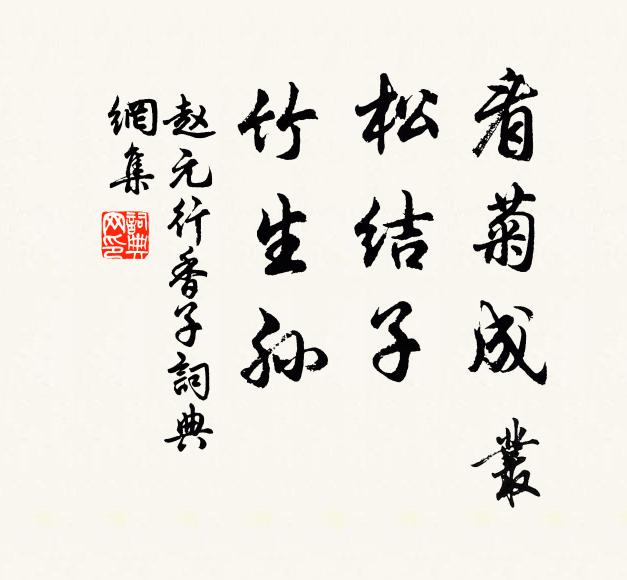 看菊成叢
松结子
竹生孙
赵元行香子詞典
網集
詞典网印